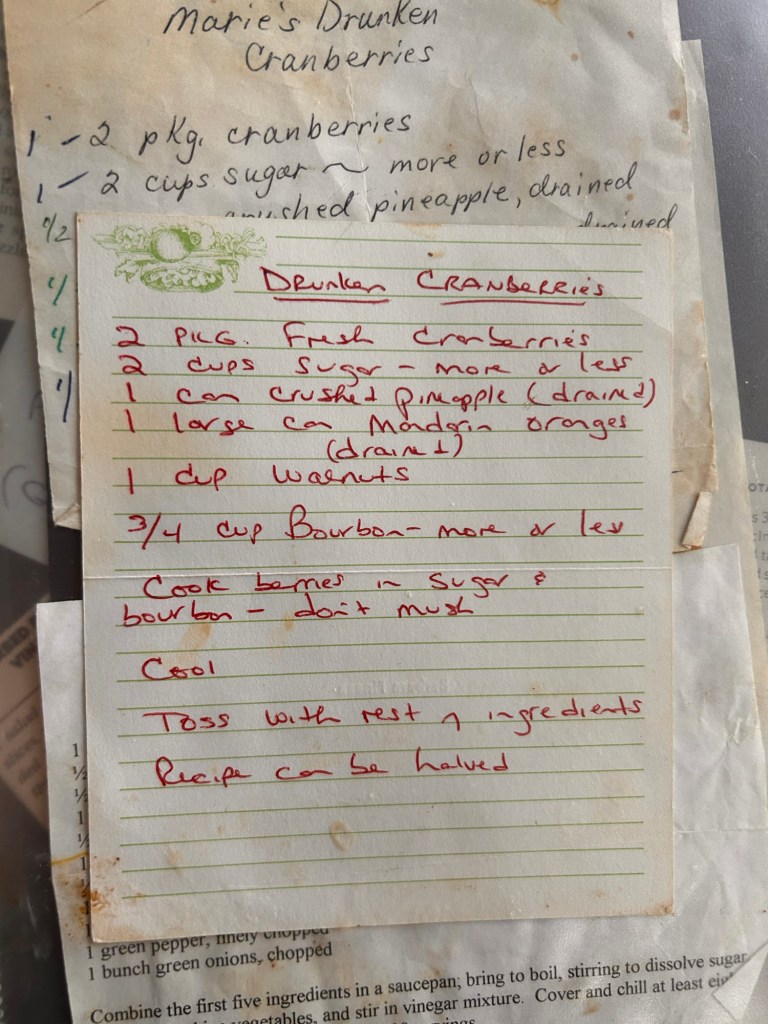 Marie's Drunken
Cranberries
1 - 2 pkg. cranberries
1 - 2 cups sugar ~ more or less
crushed pineapple, drained
1/2 drained
Drunken Cranberries
2 PKG. Fresh Cranberries
2 cups Sugar - more or less
1 can crushed pineapple (drained)
1 large can Mandarin oranges
(drained)
1 cup Walnuts
3/4 cup Bourbon - more or less
Cook berries in Sugar &
bourbon - don't mush
Cool
Toss with rest of ingredients
Recipe can be halved
1
1/2
1/2
1
1/2
1
1 green pepper, finely chopped
1 bunch green onions, chopped
Combine the first five ingredients in a saucepan; bring to boil, stirring to dissolve sugar
vegetables, and stir in vinegar mixture. Cover and chill at least